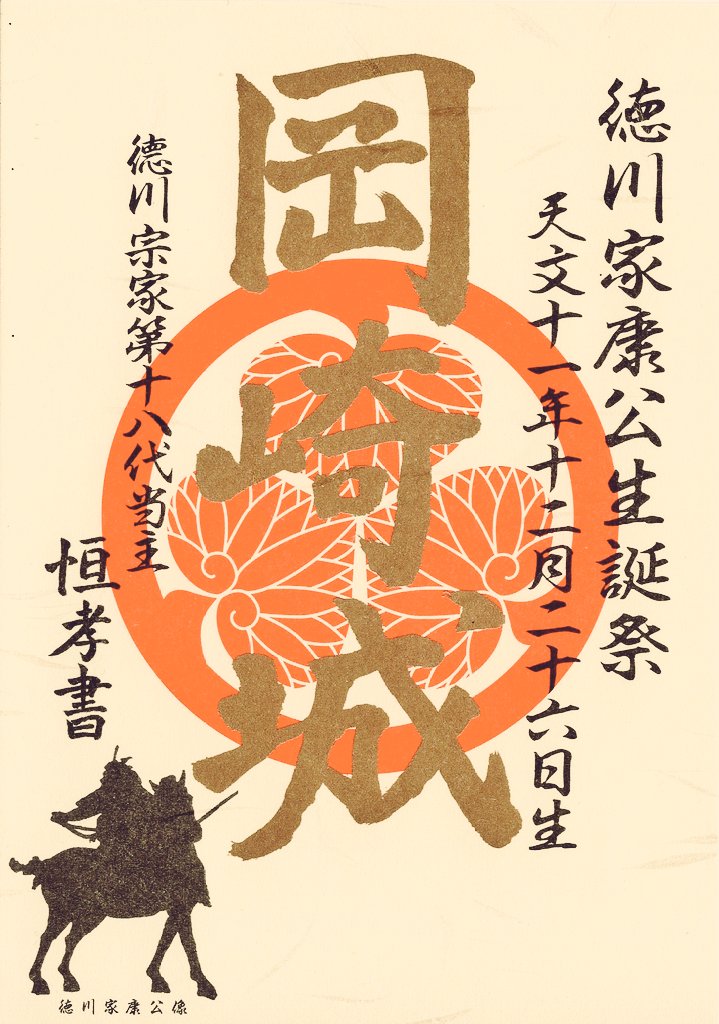 徳川家康公生誕祭
天文十一年十二月二十六日生
岡崎城
徳川宗家第十八代当主
恒孝書
徳川家康公像